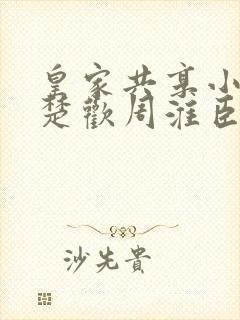 皇家共享小
楚歡周淮臣
沙先貴